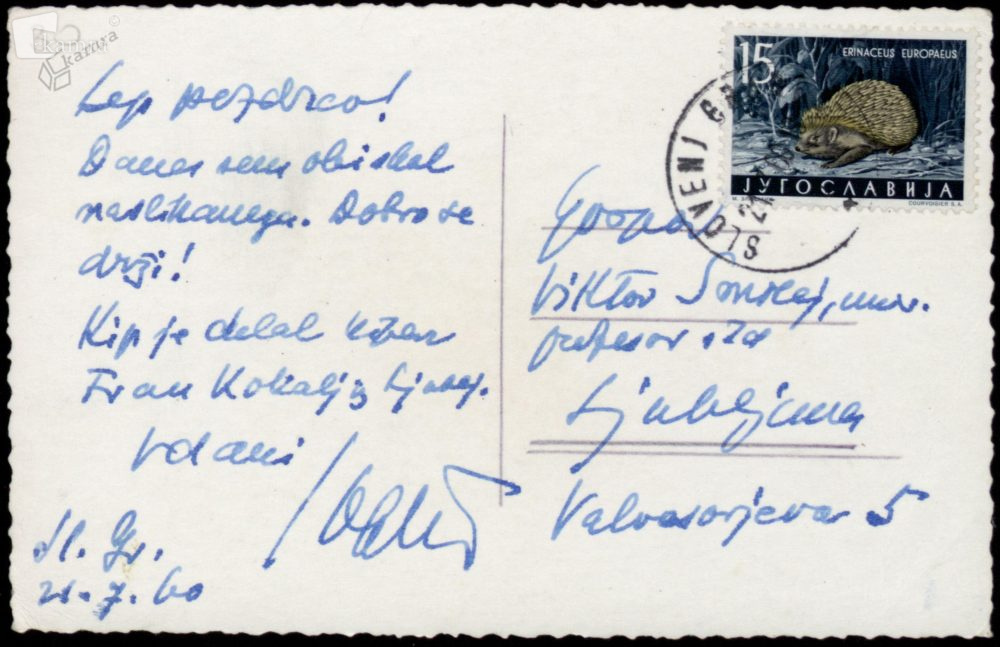 Lep pozdrav!
Danes sem obiskal
naslikanega. Dobro se
drži!
Kip je delal
Fran Kokalj iz Ljubej.
Vdani
Sl. Gr.
21. 7. 60
kamra
15
ERINACEUS EUROPAEUS
ЈУГОСЛАВИЈА
COURVOISIER S.A.
SLOVENJ GR
Gospod
Viktor
profesor
Ljubljana
Valvasorjeva 5